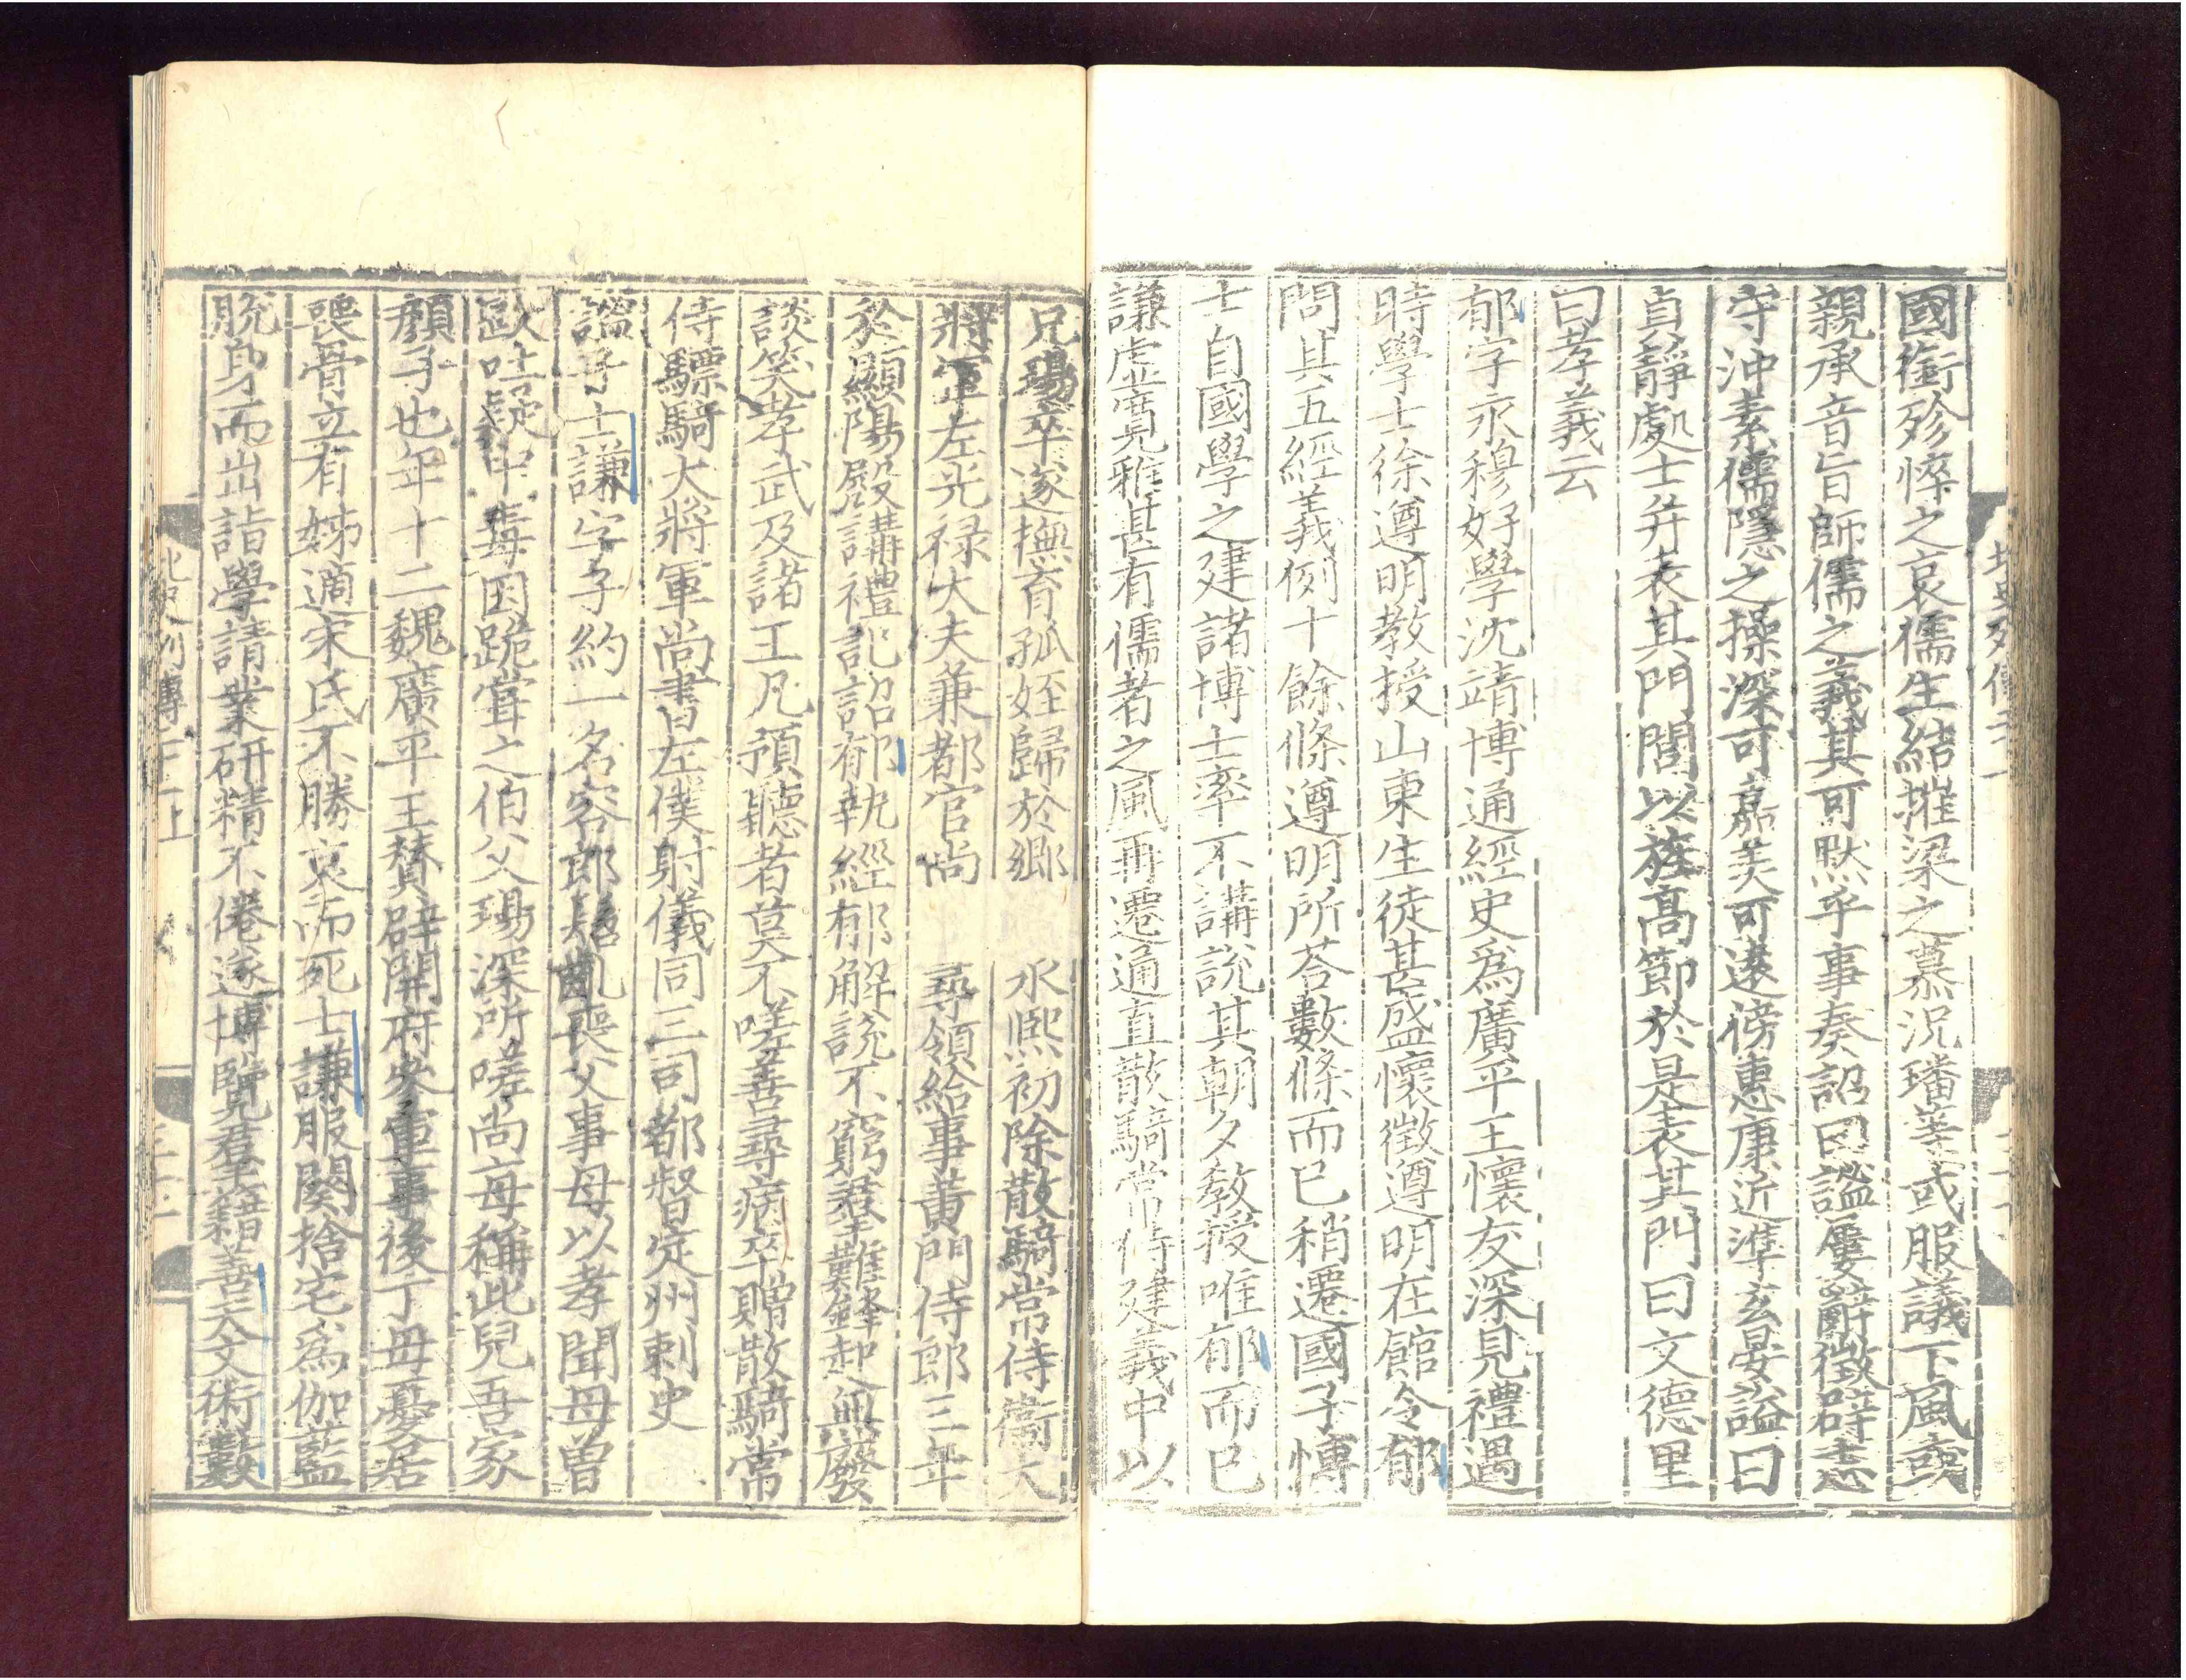 國銜殄悴之哀儒生結摧梁之慕况璠等或服議下風或
親承音旨師儒之義其可默乎事奏詔曰謐屢辭徵辟志
守沖素儒隱之操深可嘉美可遠傍惠康近準玄晏謚曰
貞靜處士并表其門閭以旌高節於是表其門曰文德里
曰孝義云
郁字永穆好學沈靖博通經史爲廣平王懷友深見禮遇
時學士徐遵明教授山東生徒甚盛懷徵遵明在館令郁
問其五經義例十餘條遵明所荅數條而已稍遷國子博
士自國學之建諸博士率不講說其朝夕教授唯郁而已
謙虛寬雅甚有儒者之風再遷通直散騎常侍建義中以
兄瑒卒遂撫育孤姪歸於鄉 永熙初除散騎常侍衞大
將軍左光禄大夫兼都官尚 尋領給事黃門侍郎三年
於顯陽殿講禮記詔郁執經郁解說不窮羣難鋒起無廢
談笑孝武及諸王凡預聽者莫不嗟善尋病卒贈散騎常
侍驃騎大將軍尚書左僕射儀同三司都督定州刺史
謐子士謙字子約一名容郎髫齓喪父事母以孝聞母曽
歐吐疑中毒因跪嘗之伯父瑒深所嗟尚毎稱此兒吾家
顏子也年十二魏廣平王贊辟開府參軍事後丁母憂居
喪骨立有姊適宋氏不勝哀而死士謙服闋捨宅爲伽藍
脫身而出詣學請業研精不倦遂博覽羣籍善天文術數
北史列傳二十一上